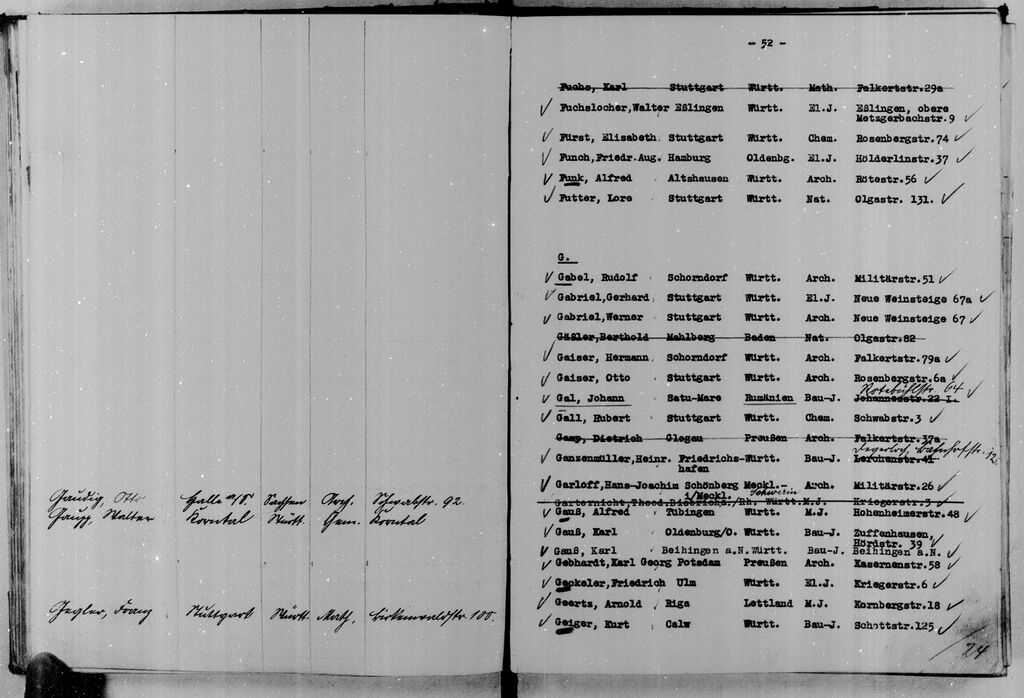 Gaudig, Otto Halle a/S Sachsen Arch. Schwabstr. 92
Gaupp, Walter Korntal Württ. Gem. Korntal
Gegler, Franz Stuttgart Württ. Math. Birkenwaldstr. 100.
- 52 -
Fuchs, Karl Stuttgart Württ. Math. Falkertstr.29a
Fuchslocher,Walter Eßlingen Württ. El.J. Eßlingen, obere
Metzgerbachstr.9
Fürst, Elisabeth Stuttgart Württ. Chem. Rosenbergstr.74
Funch,Friedr.Aug. Hamburg Oldenbg. El.J. Hölderlinstr.37
Funk, Alfred Altshausen Württ. Arch. Rötestr.56
Futter, Lore Stuttgart Württ. Nat. Olgastr. 131.
G.
Gabel, Rudolf Schorndorf Württ. Arch. Militärstr.51
Gabriel,Gerhard Stuttgart Württ. El.J. Neue Weinsteige 67a
Gabriel,Werner Stuttgart Württ. Arch. Neue Weinsteige 67
Gäßler,Berthold Mahlberg Baden Nat. Olgastr.82
Gaiser, Hermann Schorndorf Württ. Arch. Falkertstr.79a
Gaiser, Otto Stuttgart Württ. Arch. Rosenbergstr.6a
Rotebühlstr. 64
Gal, Johann Satu-Mare Rumänien Bau-J. Johannesstr.22 I.
Gall, Hubert Stuttgart Württ. Chem. Schwabstr.3
Gamp, Dietrich Glogau Preußen Arch. Falkertstr.37a
Degerloch, Bahnhofstr. 12
Ganzenmüller,Heinr. Friedrichs- Württ. Bau-J. Lerchenstr.41
hafen
Garloff,Hans-Joachim Schönberg Meckl.- Arch. Militärstr.26
i/Meckl. Schwerin
Garternicht,Theod. /Rh. Württ. M.J. Kriegerstr.3
Gauß, Alfred Tübingen Württ. M.J. Hohenheimerstr.48
Gauß, Karl Oldenburg/O. Württ. Bau-J. Zuffenhausen,
Hördstr. 39
Gauß, Karl Beihingen a.N. Württ. Bau-J. Beihingen a.N.
Gebhardt,Karl Georg Potsdam Preußen Arch. Kasernenstr.58
Geckeler,Friedrich Ulm Württ. El.J. Kriegerstr.6
Geertz, Arnold Riga Lettland M.J. Kornbergstr.18
Geiger, Kurt Calw Württ. Bau-J. Schottstr.125
24